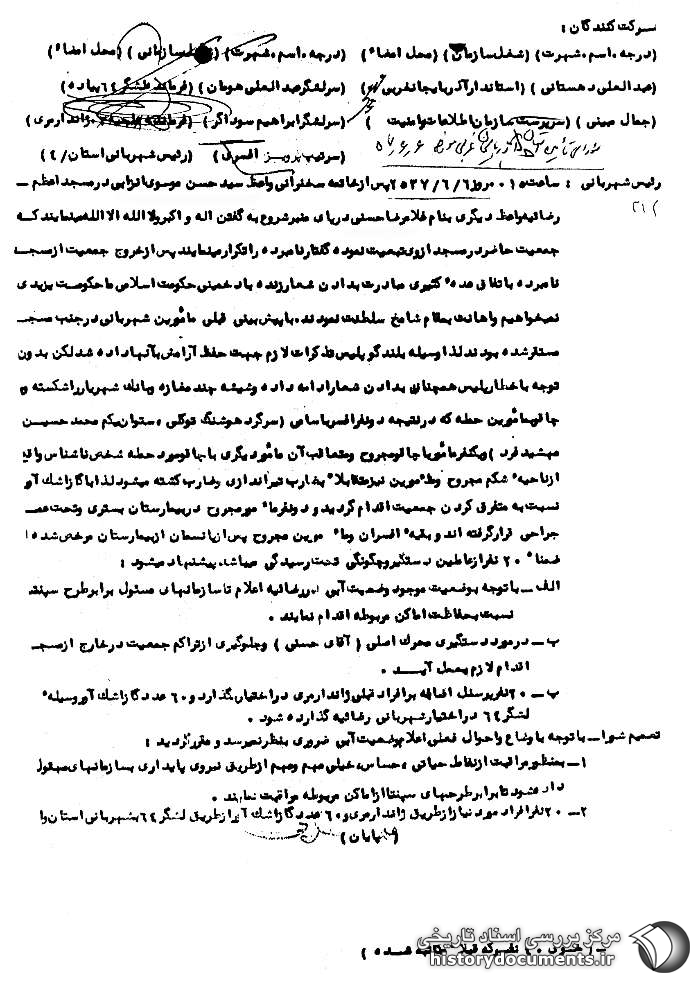 شرکت کنندگان :
(درجه ، اسم ، شهرت) (شغل سازمانی) (محل امضاء) (درجه ، اسم ، شهرت) (شغل سازمانی) (محل امضاء)
(عبدالعلی دهستانی) (استاندار آذربایجانغربی) (سرلشگر عبدالعلی هومان) (فرمانده لشگر ۶۴ پیاده)
(جمال مبینی) (سرپرست سازمان اطلاعات و امنیت) (سرلشگر ابراهیم سوداگر) (ژاندارمری)
(سرتیپ پرویز افسری) (رئیس شهربانی استان/۴)
رئیس شهربانی : ساعت ۰۱ روز ۲۵۳۷/۶/۶ پس از خاتمه سخنرانی واعظ سید حسن موسوی در مسجد اعظم –
رضائیه واعظ دیگری بنام غلامرضا حسنی در پای منبر شروع به گفتن اله و اکبر ولا اله الا الله مینمایند که
جمعیت حاضر در مسجد از وی تبعیت نموده گفتار نامبرده را تکرار مینمایند پس از خروج جمعیت از مسجد
نامبرده باتفاق عده کثیری مبادرت بدادن شعار زنده باد خمینی حکومت اسلامی ما حکومت یزیدی
نمیخواهیم واهانت بمقام شامخ سلطنت نمودند ، با پیش بینی قبلی مأمورین شهربانی در جنب مسجد
مستقر شده بودند لذا وسیله بلندگو پلیس تذکرات لازم جهت حفظ آرامش بآنها داده شد لکن بدون
توجه باخطار پلیس همچنان بدادن شعار ادامه داده و شیشه چند مغازه وبانک شهریار را شکسته و
چاقو بمأمورین حمله که در نتیجه دو نفر افسر باسامی (سرگرد هوشنگ توکلی ، ستوانیکم محمد حسین
فرد) ویکنفر مأمور با چاقو مجروح ومتعاقب آن مأمور دیگری با چاقو مورد حمله شخص ناشناس واقع
از ناحیه شکم مجروح ومأمورین نیز متقابلا بضارب تیراندازی وضارب کشته میشود لذا با گاز اشک آور
نسبت به متفرق کردن جمعیت اقدام گردید و دو نفر مأمور مجروح در بیمارستان بستری وتحت عمل
جراحی قرار گرفته اند و بقیه افسران ومأمورین مجروح پس از پانسمان از بیمارستان مرخص شده
ضمنا ۲۰ نفر از عاملین دستگیر وچگونگی تحت رسیدگی میباشد پیشنهاد میشود :
الف – با توجه بوضعیت موجود وضعیت آبی در رضائیه اعلام تا سازمانهای مسئول برابر طرح سپنتا
نسبت بحفاظت اماکن مربوطه اقدام نمایند .
ب – در مورد دستگیری محرک اصلی ( آقای حسنی ) وجلوگیری از تراکم جمعیت در خارج از مسجد
اقدام لازم بعمل آیــد .
پ – ۲۰ نفر پرسنل اضافه بر افراد قبلی ژاندارمری در اختیار بگذارد و ۶۰ عدد گاز اشک آور وسیله
لشگر ۶۴ در اختیار شهربانی رضائیه گذارده شود .
تصمیم شورا – با توجه باوضاع واحوال فعلی اعلام وضعیت آبی ضروری بنظر نمیرسد و مقرر گردید :
۱ – بمنظور مراقبت از نقاط حیاتی ، حساس ، خیلی مهم ومهم از طریق نیروی پایداری بسازمانهای مسئول
داده شود تا برابر طرحهای سپنتا از اماکن مربوطه مراقبت نمایند .
۲ – ۲۰ نفر افراد مورد نیاز از طریق ژاندارمری و ۶۰ عدد گاز اشک آور از طریق لشگر ۶۴ بشهربانی استان
(پایان)
مرکز بررسی اسناد تاریخی
historydocuments.ir